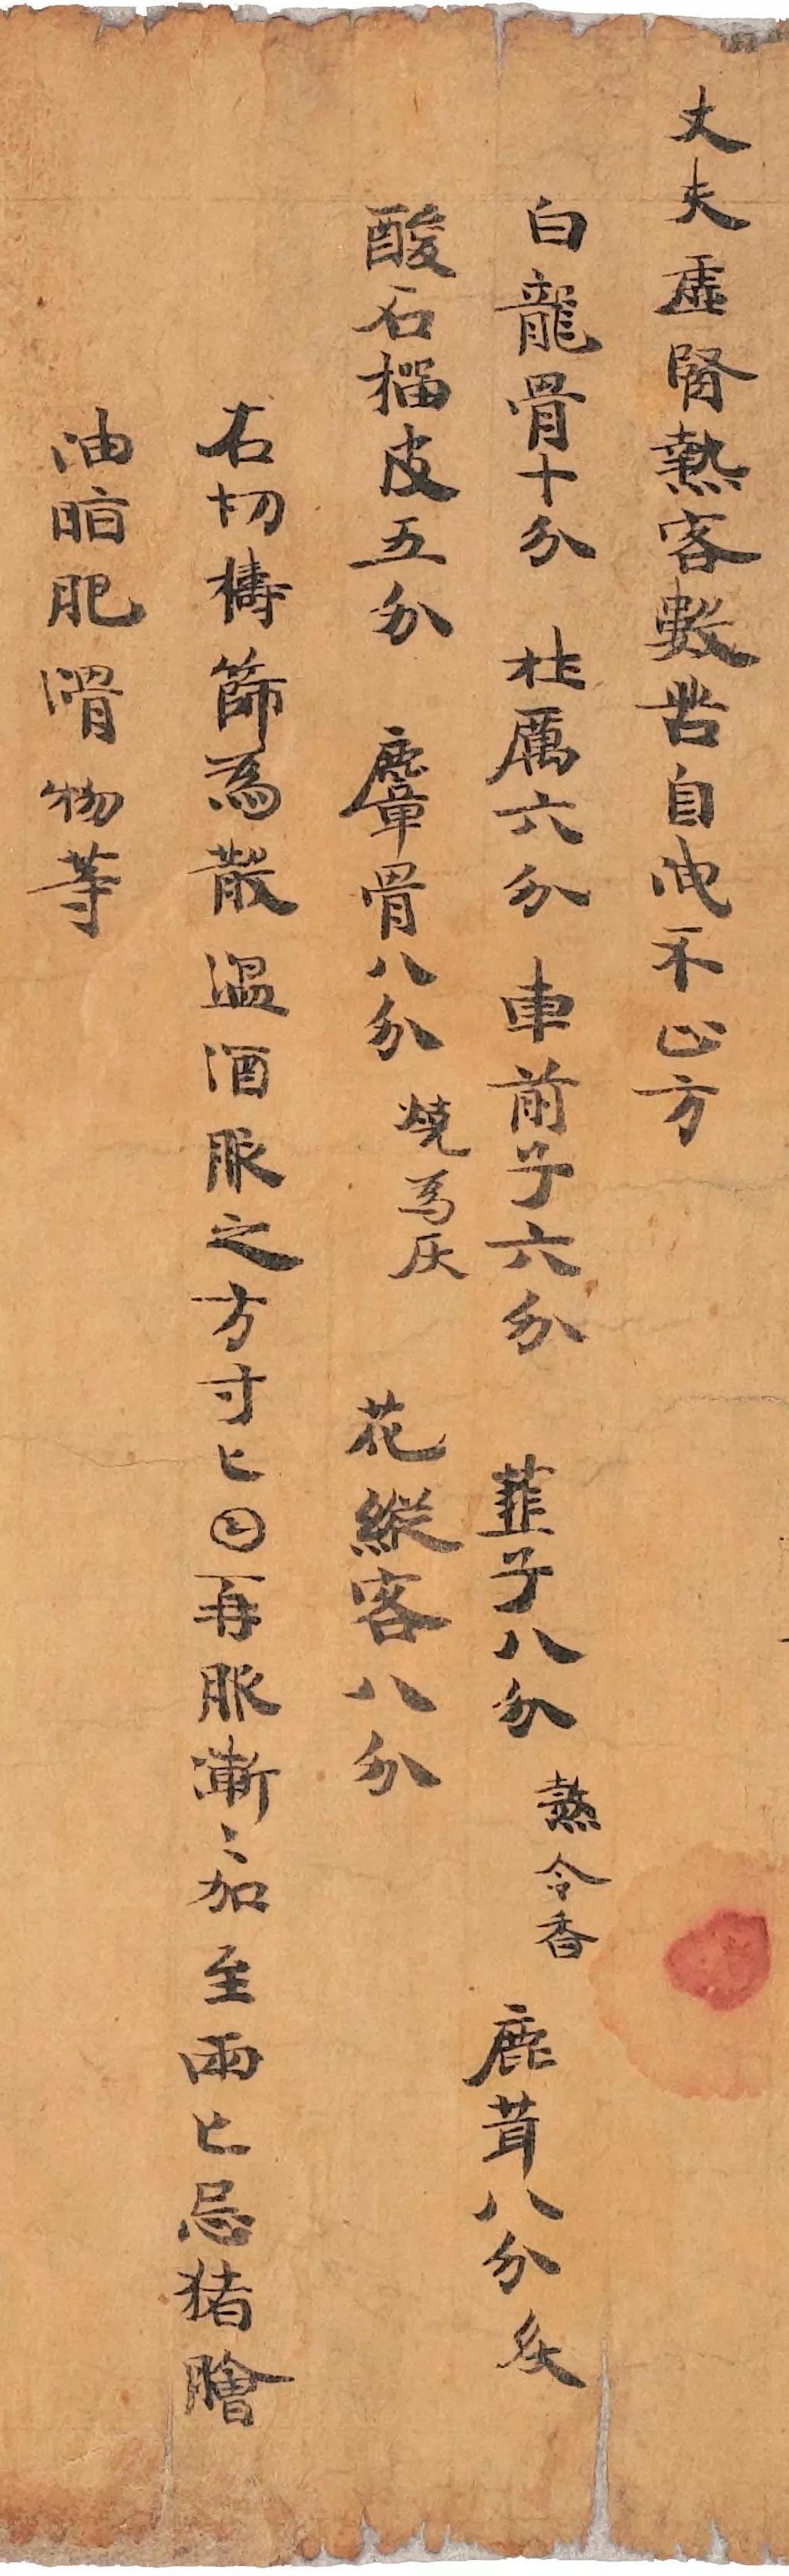 丈夫虛腎熱客數苦自洩不止方
白龍骨十分 杜厲六分 車前子六分 韮子八分 熬令香 鹿茸八分 炙
酸石榴皮五分 麞骨八分 燒為灰 花縱容八分
右切擣篩為散溫酒服之方寸匕日再服漸〻加至兩匕忌猪膾
油脂肥滑物等